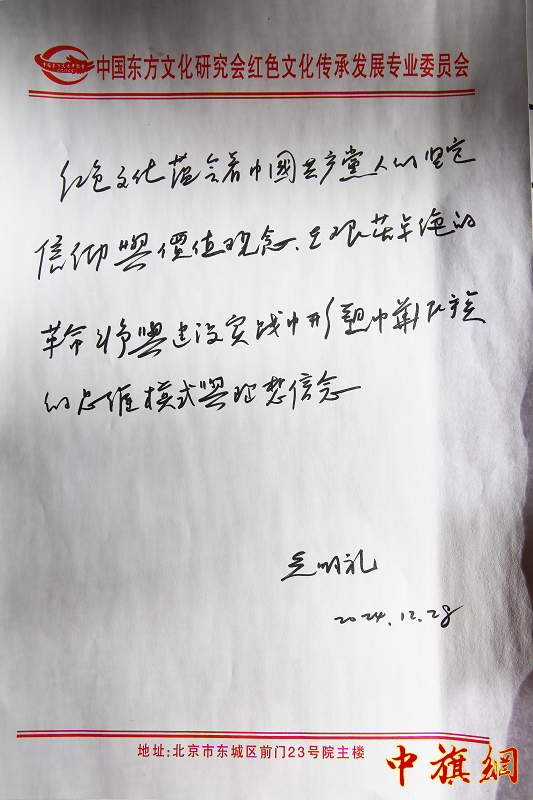 中国东方文化研究会红色文化传承发展专业委员会
红色文化蕴含着中國共产党人的坚定
信仰與價值观念、在艰苦卓绝的
革命斗争與建设实践中形塑中華民族
的思维模式與理想信念
明礼
2024.12.28
地址:北京市东城区前门23号院主楼
中旗網